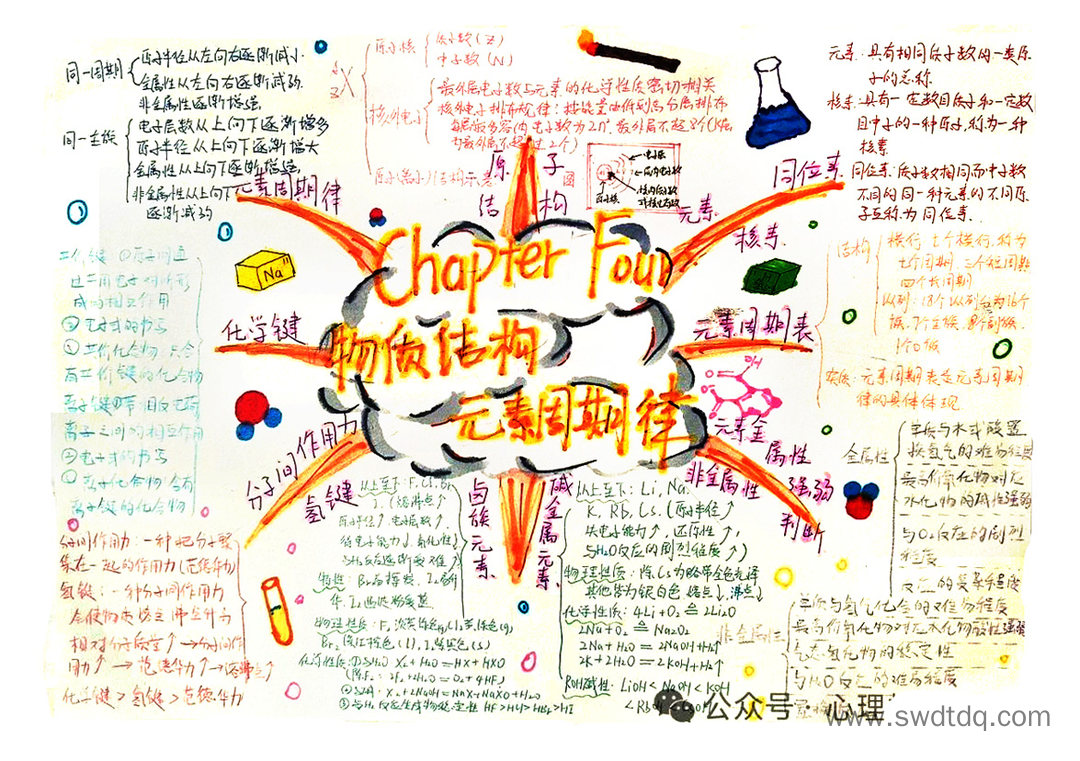 Chapter Four
物质结构
元素周期律
元素周期律
同一周期
原子半径从左向右逐渐减小
金属性从左向右逐渐减弱
非金属性逐渐增强
同一主族
电子层数从上向下逐渐增多
原子半径从上向下逐渐增大
金属性从上向下逐渐增强
非金属性从上向下
逐渐减弱
原子
结构
X
原子核
质子数(Z)
中子数(N)
核外电子
最外层电子数与元素的化学性质密切相关
核外电子排布规律:
原子(离子)结构示意
图
元素
核素
同位素
元素:具有相同质子数的一类原
子的总称
核素:具有一定数目质子和一定数
目中子的一种原子,称为一种
核素
同位素:质子数相同而中子数
不同的同一种元素的不同原
子互称为同位素.
元素周期表
结构
横行:七个横行,称为
七个周期,三个短周期
四个长周期
纵列:18个纵列
实质:元素周期表是元素周期
律的具体体现
元素金
属性
非金属性
强弱
判断
金属性
单质与水或酸置
换氢气的难易程度
最高价氧化物对应
水化物的碱性强弱
与O₂反应的剧烈
程度
非金属性
单质与氢气化合的难易程度
气态氢化物的稳定性
与H₂O反应的难易程度
碱金属元素
从上至下:Li、Na、
K、Rb、Cs.(原子半径↑
失电子能力↑,还原性↑,
与H₂O反应的剧烈程度↑)
物理性质:除Cs为略带金色光泽
其他皆为银白色 熔点↓,沸点↓
化学性质:4Li+O₂≙2Li₂O
2Na+O₂≙Na₂O₂
2Na+2H₂O=2NaOH+H₂↑
2K+2H₂O=2KOH+H₂↑
ROH碱性:LiOH<NaOH<KOH
卤族元素
从上至下:F、Cl、Br、
I(熔沸点↑
原子半径↑,电子层数↑,
得电子能力↓,氧化性↓
与H₂反应逐渐变难↑)
特性:Br₂易挥发,I₂易升
华,I₂遇淀粉变蓝
物理性质:F₂淡黄绿色(g)、Cl₂黄绿色(g)、
Br₂深红棕色(l)、I₂紫黑色(s)
化学性质:①与H₂O X₂+H₂O=HX+HXO
(除F₂:2F₂+2H₂O=O₂+4HF)
X₂+2NaOH=NaX+NaXO+H₂O
HF>HCl>HBr>HI
化学键
共价键 ①原子间通
过共用电子对所形
成的相互作用
②电子式的书写
共价化合物:只含
有共价键的化合物
离子键
离子之间的相互作用
②电子式的书写
离子化合物:含有
离子键的化合物
分子间作用力
氢键
分子间作用力:一种把分子聚
集在一起的作用力(范德华力)
氢键:一种分子间作用力
会使物质熔点沸点升高
相对分子质量↑→分子间作
用力↑→范德华力↑→熔沸点↑
化学键>氢键>范德华力
Na
OH
公众号
心理
www.swdtdq.com